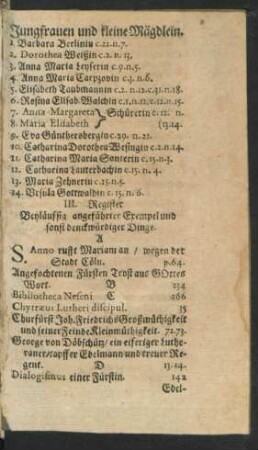 Jungfrauen und kleine Mägdlein.
1. Barbara Berliniu c.21.n.7.
2. Dorothea Weißin c.2. n. 13.
3. Anna Maria Leyserin c.9.n.5.
4. Anna Maria Carpzovin c.4. n.6.
5. Elisabeth Taubmannin c.2. n.12.c.31.n.18.
6. Rosina Elisab. Walchin c.1,n.12.c.12.n.15.
7. Anna-Margareta Schürerin c.12. n.
8. Maria Elisabeth (13.14.
9. Eva Günthersbergin c.29. n.21.
10. Catharina Dorothea Wesingin c.2.n.14.
11. Catharina Maria Sauterin c.15.n.3.
12. Catharina Lauterbachin c.15. n. 4.
13. Maria Zehnerin c.15.n.5.
24. Ursula Gottwaldin c. 15. n. 6.
III. Register
Beyläufftig angeführter Exempel und
sonst denckwürdiger Dinge.
A
S. Anno rufft Mariam an / wegen der
Stadt Cöln. p.64.
Angefochtenen Fürsten Trost aus GOttes
Wort. B 234
Bibliotheca Neseni C 266
Chytræus Lutheri discipul. 35
Churfürst Joh. Friedrichs Großmüthigkeit
und seiner Feinde Kleinmüthigkeit. 72.73.
George von Döbschütz / ein eiferiger Luthe-
raner / tapffer Edelmann und treuer Re-
gent. D 13.14.
Dialogismus einer Fürstin. 142
Edel-